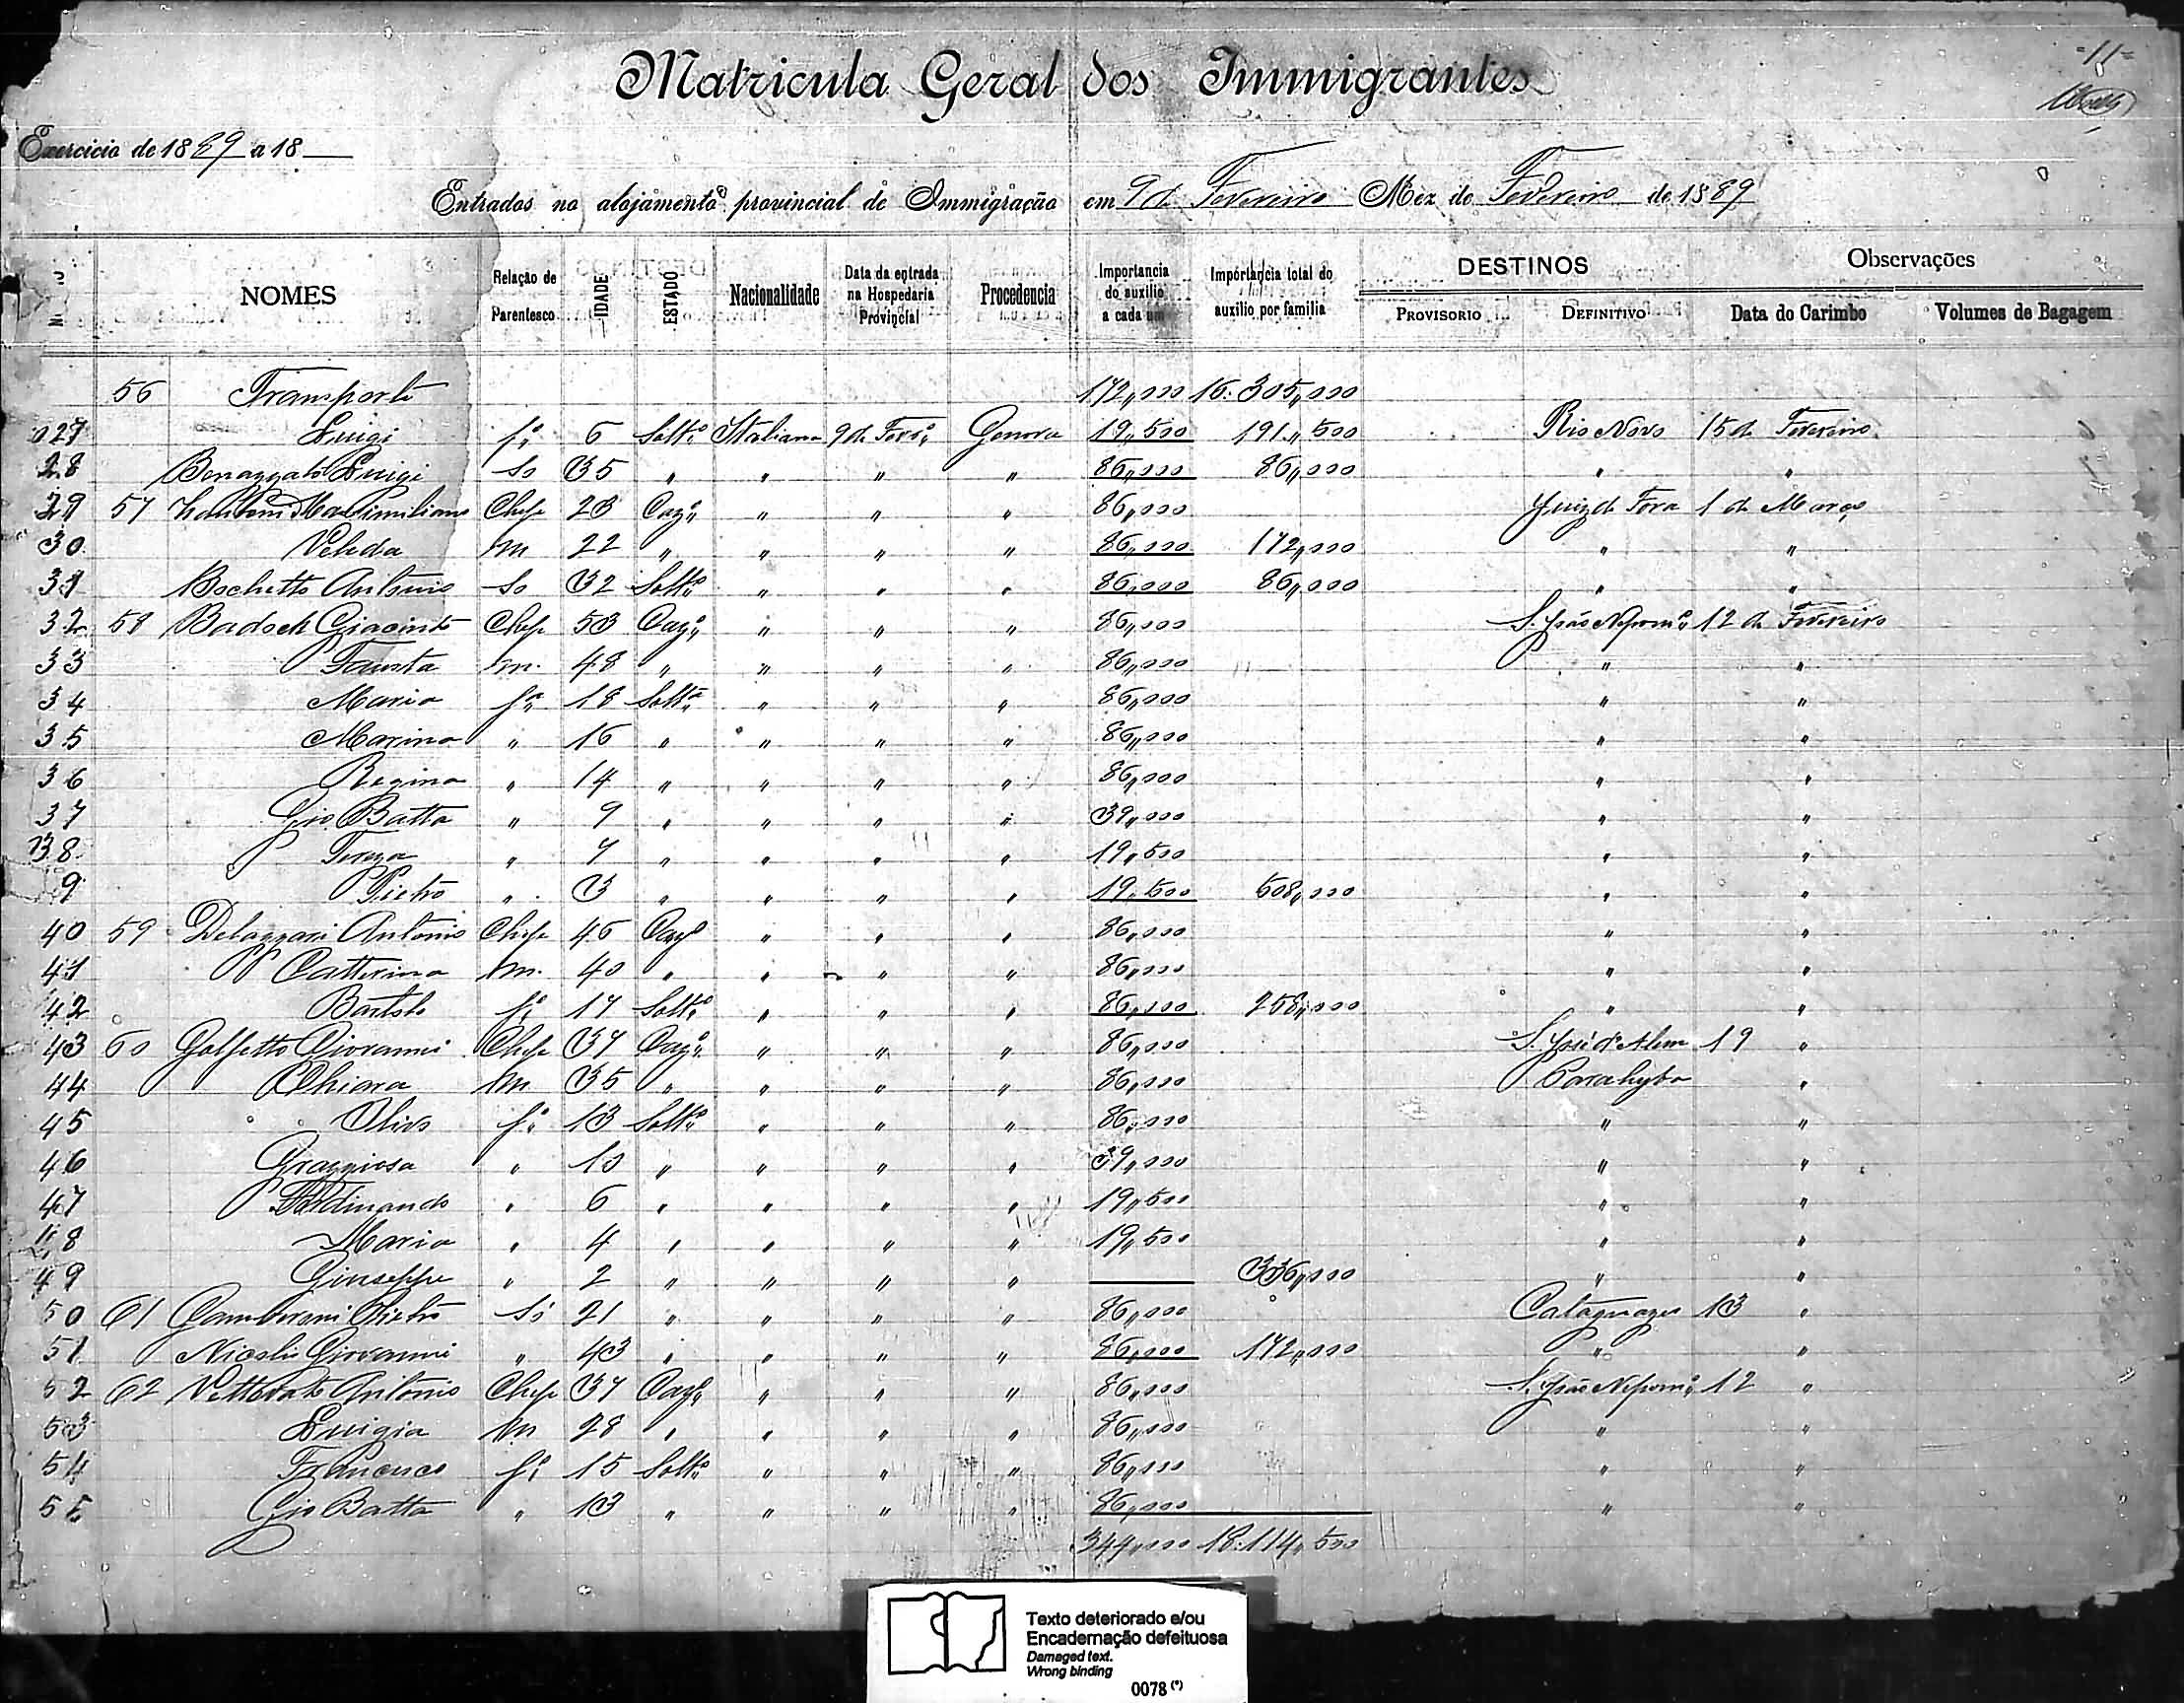 -11-
Matricula Geral dos Immigrantes
Exercicio de 1889 a 18
Entrados no alojamento provincial de Immigração em 9 de Fevereiro Mez de Fevereiro de 1889
NOMES Relação de Parentesco IDADE ESTADO Nacionalidade Data da entrada na Hospedaria Provincial Procedencia Importancia do auxilio a cada um Importancia total do auxilio por familia DESTINOS PROVISORIO DEFINITIVO Data do Carimbo Observações Volumes de Bagagem
56 Transporte 172,,000 16:305,,000
27 Luigi fo 6 Solto Italiana 9 de Fevro Genova 19,,500 191,,500 Rio Novo 15 de Fevereiro
28 Benazzato Luigi So 35 " " " " 86,,000 86,,000 " "
29 57 Maximiliano Chefe 23 Cazo " " " 86,,000 Juiz de Fora 1 de Março
30 Veleda m 22 " " " " 86,,000 172,,000 " "
31 Bochetto Antonio So 32 Solto " " " 86,,000 86,,000 " "
32 58 Badoch Giacinto Chefe 53 Cazo " " " 86,,000 S. João Nepomo 12 de Fevereiro
33 Fausta m. 48 " " " " 86,,000 " "
34 Maria fa 18 Solta " " " 86,,000 " "
35 Marina " 16 " " " " 86,,000 " "
36 Regina " 14 " " " " 86,,000 " "
37 Gio Batta " 9 " " " " 39,,000 " "
38 Tereza " 7 " " " " 19,,500 " "
9 Pietro " 3 " " " " 19,,500 508,,000 " "
40 59 Delazzari Antonio Chefe 46 Cazo " " " 86,,000 " "
41 Catterina m. 40 " " " " 86,,000 " "
42 Bortolo fo 17 Solto " " " 86,,000 258,,000 " "
43 60 Golfetto Giovanni Chefe 37 Cazo " " " 86,,000 S. José d'Alem 19 "
44 Chiara m 35 " " " " 86,,000 Parahyba "
45 Olivo fo 13 Solto " " " 86,,000 " "
46 Grazziosa " 10 " " " " 39,,000 " "
47 " 6 " " " " 19,,500 " "
48 Maria " 4 " " " " 19,,500 " "
49 Giuseppe " 2 " " " " 336,,000 " "
50 61 Pietro So 21 " " " " 86,,000 Cataguazes 13 "
51 Giovanni " 43 " " " " 86,,000 172,,000 " "
52 62 Vettorato Antonio Chefe 37 Cazo " " " 86,,000 S. João Nepomo 12 "
53 Luigia m 28 " " " " 86,,000 " "
54 Francesco fo 15 Solto " " " 86,,000 " "
55 Gio Batta " 13 " " " " 86,,000 " "
344,,000 18:114,,500
Texto deteriorado e/ou
Encadernação defeituosa
Damaged text.
Wrong binding
0078 (*)